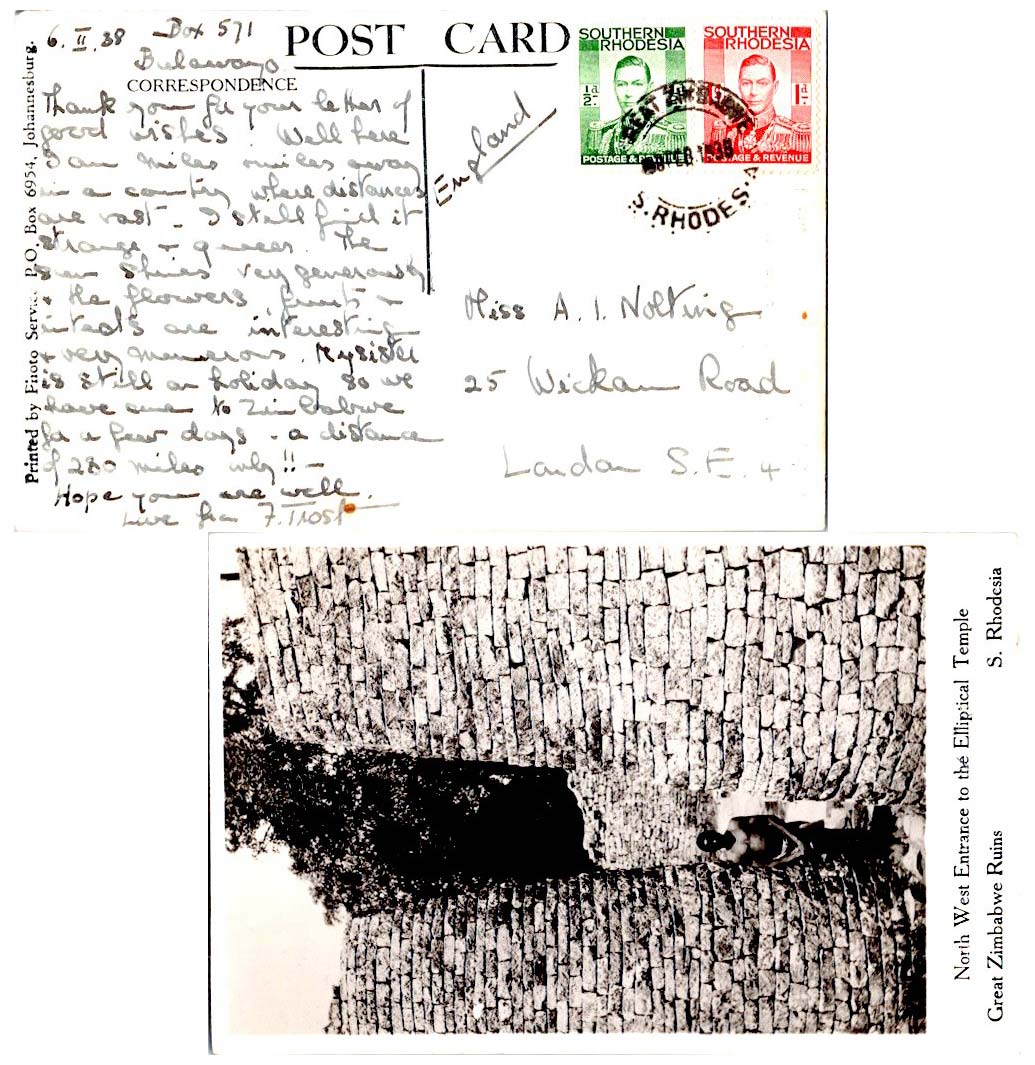 6.II.38 Box 571
Bulawayo
POST CARD
CORRESPONDENCE
Thank you for your letter of
good wishes. Well here
I am miles & miles away
in a country where distances
are vast - I still find it
strange & queer. The
sun shines very generously
& the flowers fruit &
insects are interesting
& very numerous. My sister
is still on holiday so we
have come to Zimbabwe
for a few days - a distance
of 280 miles only!! -
Hope you are well.
Love from F. Trost
Printed by Photo Service P.O. Box 6954, Johannesburg.
England
SOUTHERN
RHODESIA
½d
POSTAGE & REVENUE
SOUTHERN
RHODESIA
1d
POSTAGE & REVENUE
GREAT ZIMBABWE
FEB 1938
S. RHODESIA
Miss A. I. Nolting
25 Wickam Road
London S.E. 4
North West Entrance to the Elliptical Temple
Great Zimbabwe Ruins S. Rhodesia